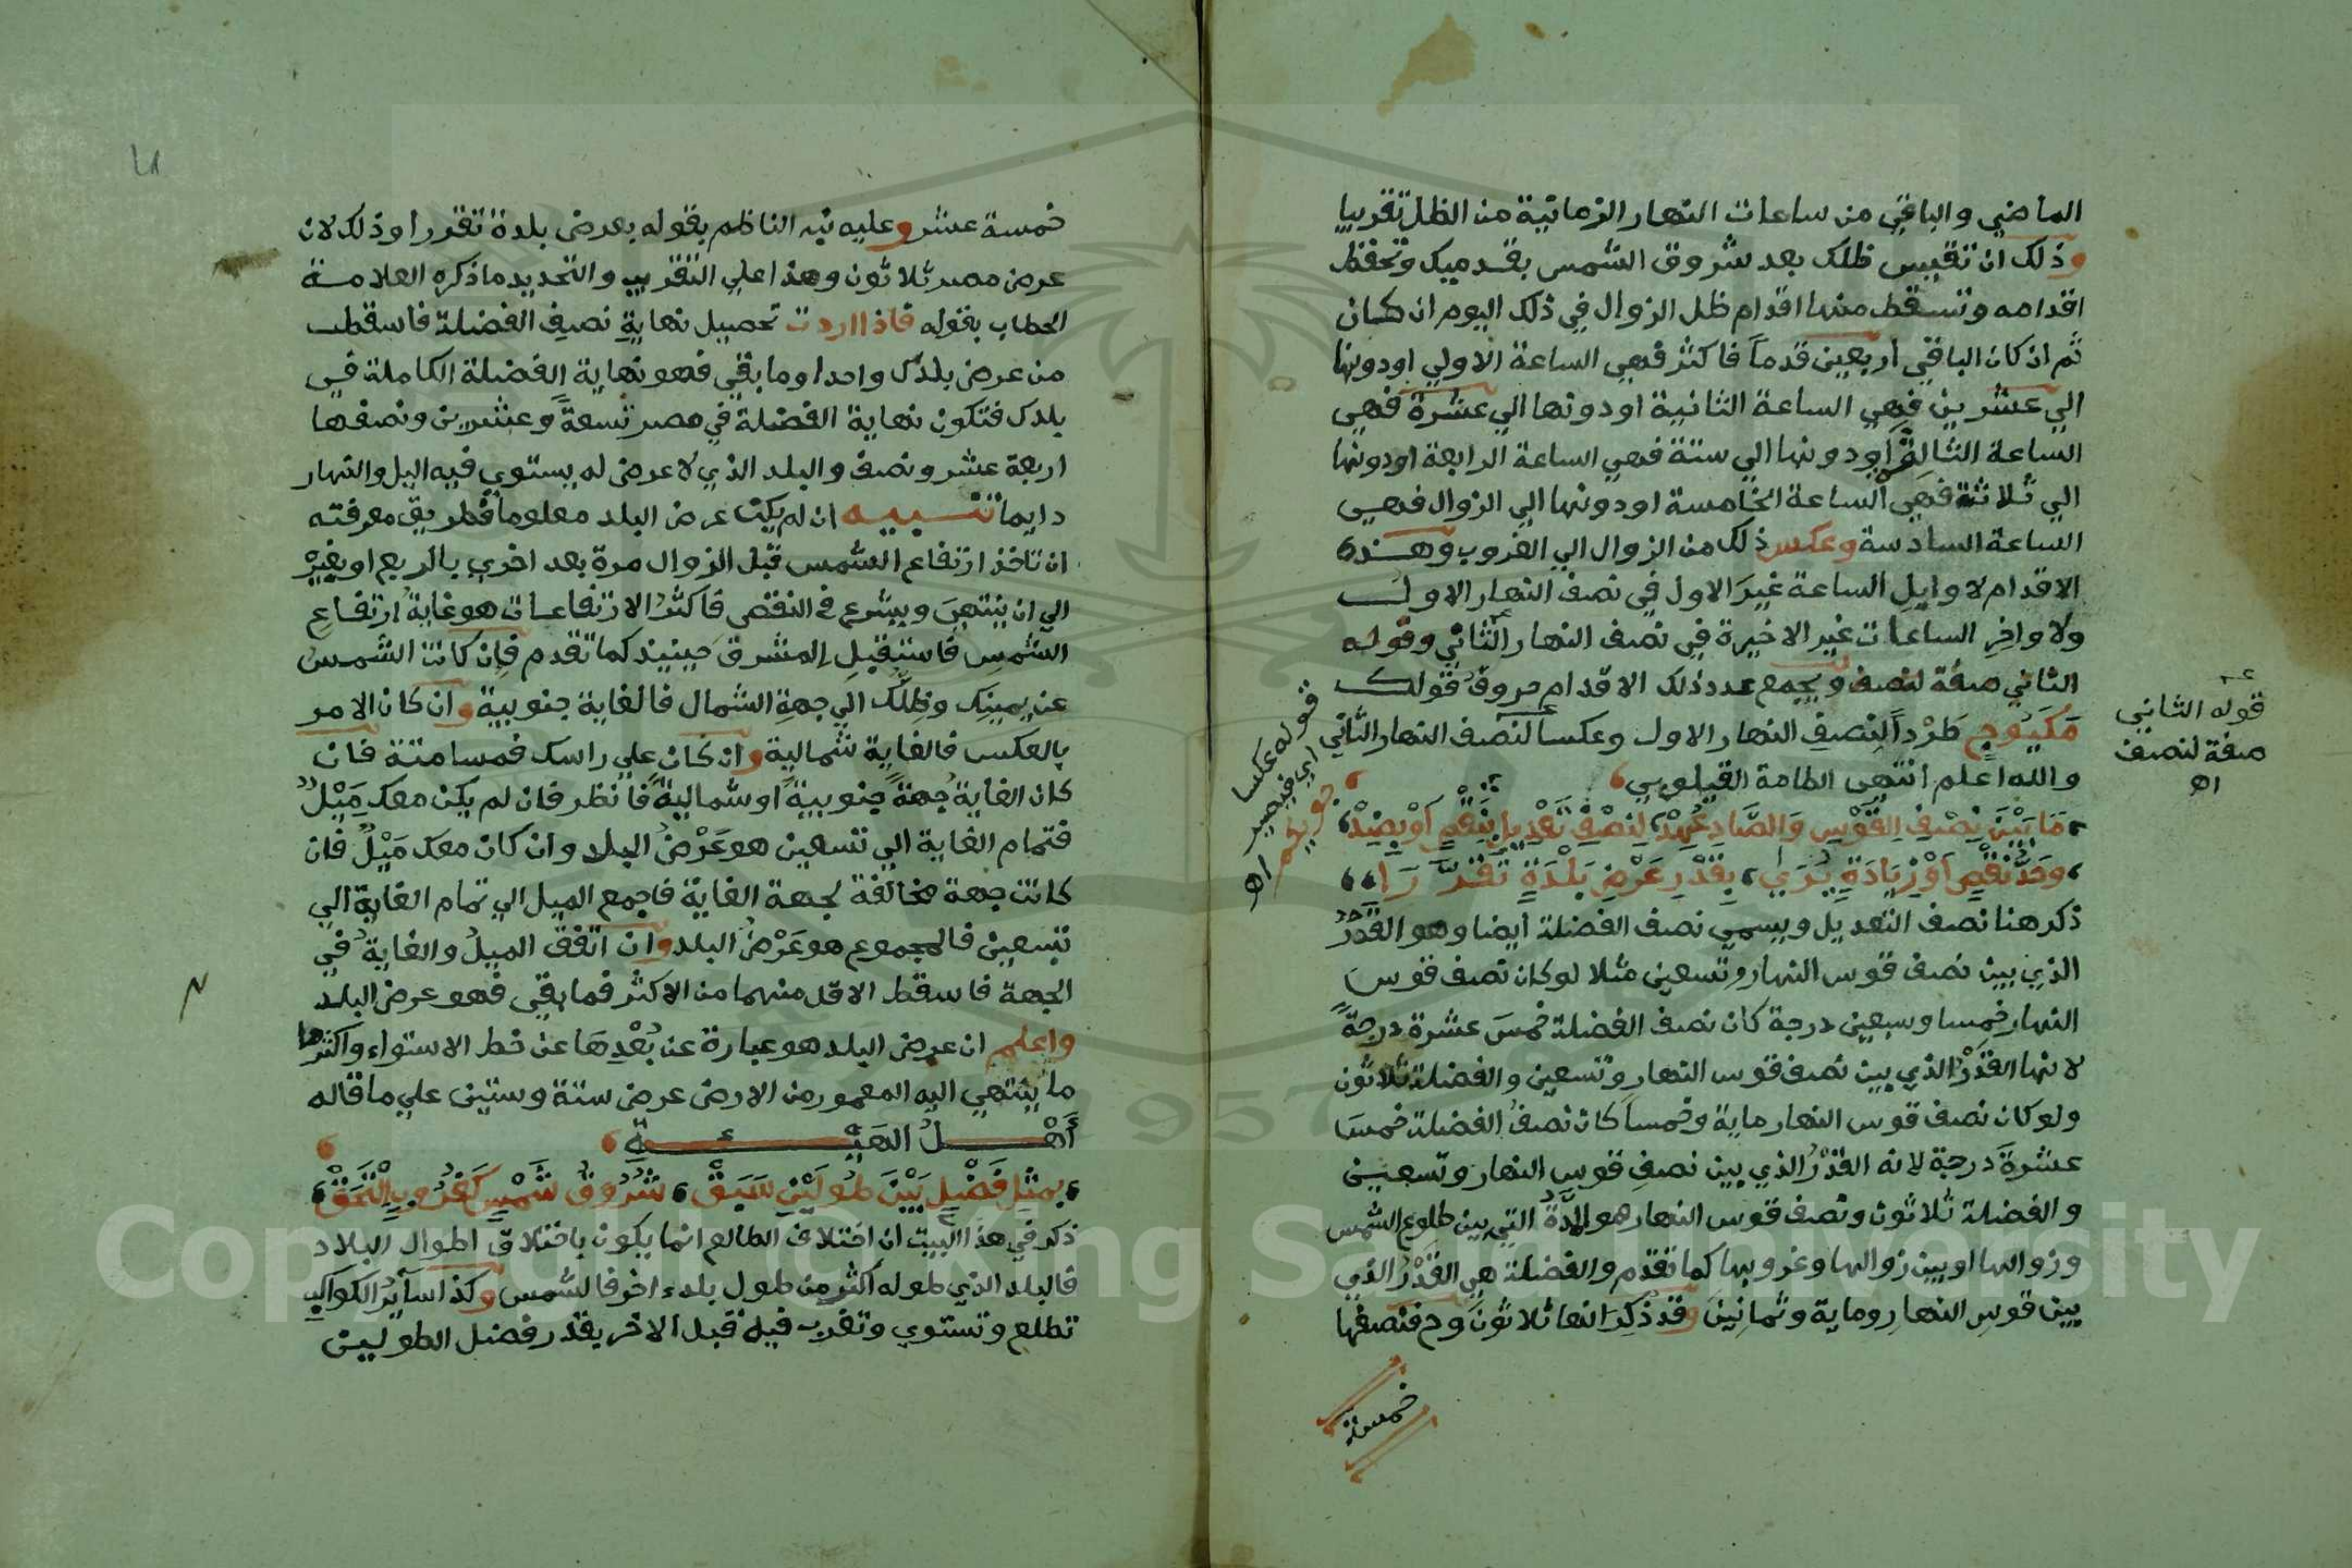 الماضي والباقي من ساعات النهار الزمانية من الظل تقريبا
وذلك ان تقيس ظلك بعد شروق الشمس بقدميك وتحفظ
اقدامه وتسقط منها اقدام ظل الزوال في ذلك اليوم ان كان
ثم ان كان الباقي اربعين قدماً فاكثر فهي الساعة الاولي اودونها
الي عشرين فهي الساعة الثانية اودونها الي عشرة فهي
الساعة الثالثة اودونها الي ستة فهي الساعة الرابعة اودونها
الي ثلاثة فهي الساعة الخامسة اودونها الي الزوال فهي
الساعة السادسة وعكس ذلك من الزوال الي الغروب وهذه
الاقدام لاوايل الساعة غيرَ الاول في نصف النهار الاول
ولاواخِر الساعات غير الاخيرة في نصف النهار الثاني وقوله
الثاني صفة لنصف ويجمع عدد ذلك الاقدام حروف قولك
مَكَيُوجٍ طَرْداً لنِصفِ النهار الاول وعكسا لنصف النهار الثاني
والله اعلم انتهى الطامة القيلوبي
مَا بَيْنَ نِصْفِ القَوْسِ وَالصَّادِ عُهِدْ لِنِصْفِ تَعْدِيلٍ بِنَقْصٍ اَوْ بِضِدْ
وَحَدُّ نَقْصٍ اَوْ زِيَادَةٍ يُرَي بِقَدْرِ عَرْضِ بَلْدَةٍ تَقَرَّرَا
ذكر هنا نصف التعديل ويسمي نصف الفضلة ايضا وهو القَدْرُ
الذي بين نصف قوس النهار وتسعين مثلا لوكان نصف قوس
النهار خمسا وسبعين درجة كان نصف الفضلة خمسَ عشرة درجةً
لانها القَدْرُ الذي بين نصف قوس النهار وتسعين والفضلة ثلاثون
ولوكان نصف قوس النهار ماية وخمساً كان نصفُ الفضلة خمسَ
عشرةَ درجة لانه القَدْرُ الذي بين نصفِ قوس النهار وتسعين
والفضلة ثلاثون ونصف قوس النهار هو المدةُ التي بين طلوع الشمس
وزوالها اوبين زوالها وغروبها كما تقدم والفضلة هي القَدْرُ الذي
بين قوسِ النهارِ وماية وثمانينَ وقد ذُكِرَ انها ثلاثونَ وح فنصفها
خمسة
قوله الثاني
صفة لنصف
اه
قوله عكسا
اي فيصير
جويكم اه
خمسة عشر وعليه نبه الناظم بقوله بعرض بلدة تقررا وذلك لان
عرض مصر ثلاثون وهذا علي التقريب والتحديد ماذكره العلامة
الحطاب بقوله فاذا اردت تحصيل نهايةِ نصفِ الفضلة فاسقط
من عرض بلدك واحدا وما بقي فهو نهاية الفضلة الكاملة في
بلدك فتكون نهاية الفضلة في مصر تسعةً وعشرين ونصفها
اربعة عشر ونصف والبلد الذي لاعرض له يستوي فيه اليل والنهار
دايما تنبيه ان لم يكن عرض البلد معلوما فطريق معرفته
ان تاخذ ارتفاع الشمس قبل الزوال مرة بعد اخري بالربع اوبغيرْ
الي ان ينتهيَ ويشرع في النقص فاكثرُ الارتفاعات هو غايةُ ارتفاعِ
الشمسِ فاستقبلِ المشرق حينيند كما تقدم فإن كانت الشمسُ
عن يمينِك وظلُّك الي جهةِ الشمال فالغاية جنوبية وان كان الامر
بالعكس فالغاية شمالية وان كان علي راسك فمسامتة فان
كان الغايةُ جهةً جنوبيةً اوشماليةً فانظر فان لم يكن معك مَيْلٌ
فتمام الغاية الي تسعين هو عَرْضُ البلد وان كان معك مَيْلٌ فان
كانت جهة مخالفة لجهة الغاية فاجمع الميل الي تمام الغاية الي
تسعين فالمجموع هو عَرْضُ البلد وان اتفق الميلُ والغايةُ في
الجهة فاسقط الاقل منهما من الاكثر فما بقي فهو عرض البلد
واعلم ان عرض البلد هو عبارة عن بُعْدِهَا عن خط الاستواء واكثرها
ما ينتهي اليه المعمور من الارض عرض ستة وستين علي ما قاله
أَهْلُ الهَيْئَةِ
بِمِثْلِ فَضْلٍ بَيْنَ طُولَيْنِ سَبَقْ شُرُوقُ شَمْسٍ كَغُرُوبٍ اِلْتَحَقْ
ذكر في هذا البيت ان اختلاف الطالع انما يكون باختلاق اطوال البلاد
فالبلد الذي طوله اكثر من طول بلد اخر فالشمس وكذا سآيرُ الكواكب
تطلع وتستوي وتغرب فيه قبل الاخر بقدر فضل الطولين